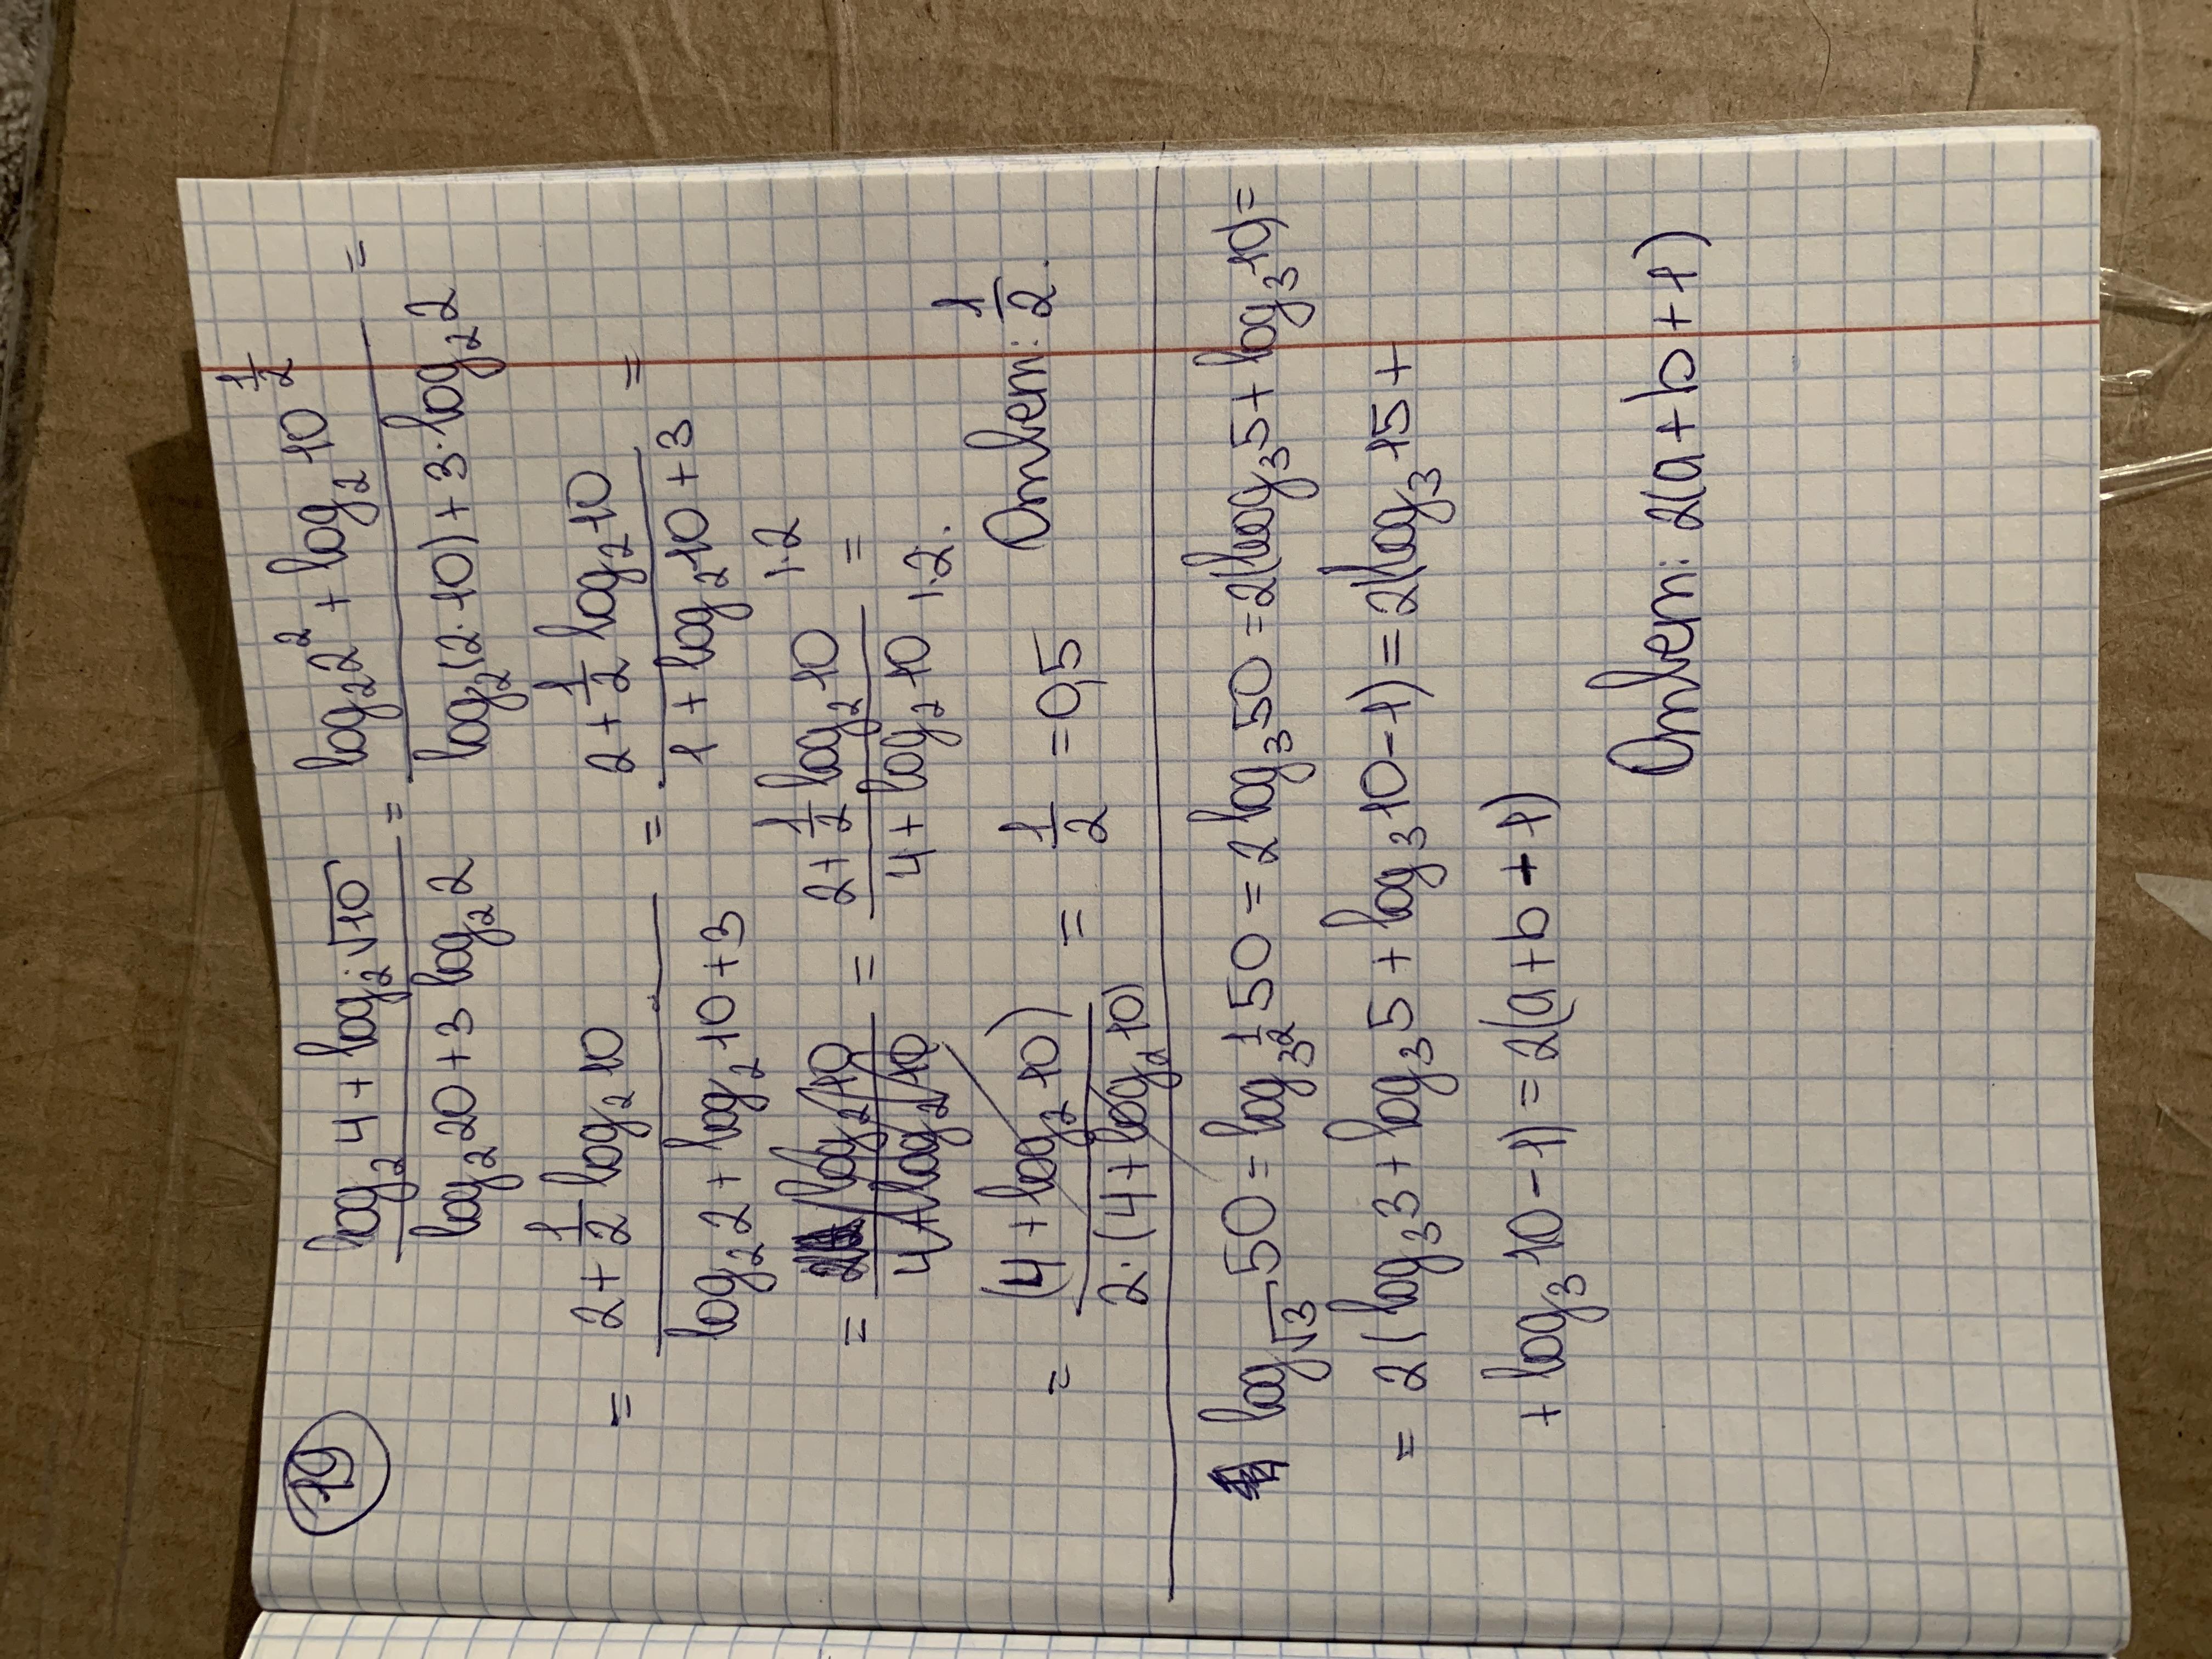 79
log₂4 + log₂√10 / log₂20 + 3 log₂2 = log₂2² + log₂10^(1/2) / log₂(2·10) + 3·log₂2 =
= 2 + 1/2 log₂10 / log₂2 + log₂10 + 3 = 2 + 1/2 log₂10 / 1 + log₂10 + 3 =
= 2 + 1/2 log₂10 |·2 / 4 + log₂10 |·2. =
= (4 + log₂10) / 2·(4 + log₂10) = 1/2 = 0,5 Ответ: 1/2.
log_√3 50 = log_3^(1/2) 50 = 2 log₃50 = 2(log₃5 + log₃10) =
= 2(log₃3 + log₃5 + log₃10 - 1) = 2(log₃15 +
+ log₃10 - 1) = 2(a + b + 1)
Ответ: 2(a + b + 1)